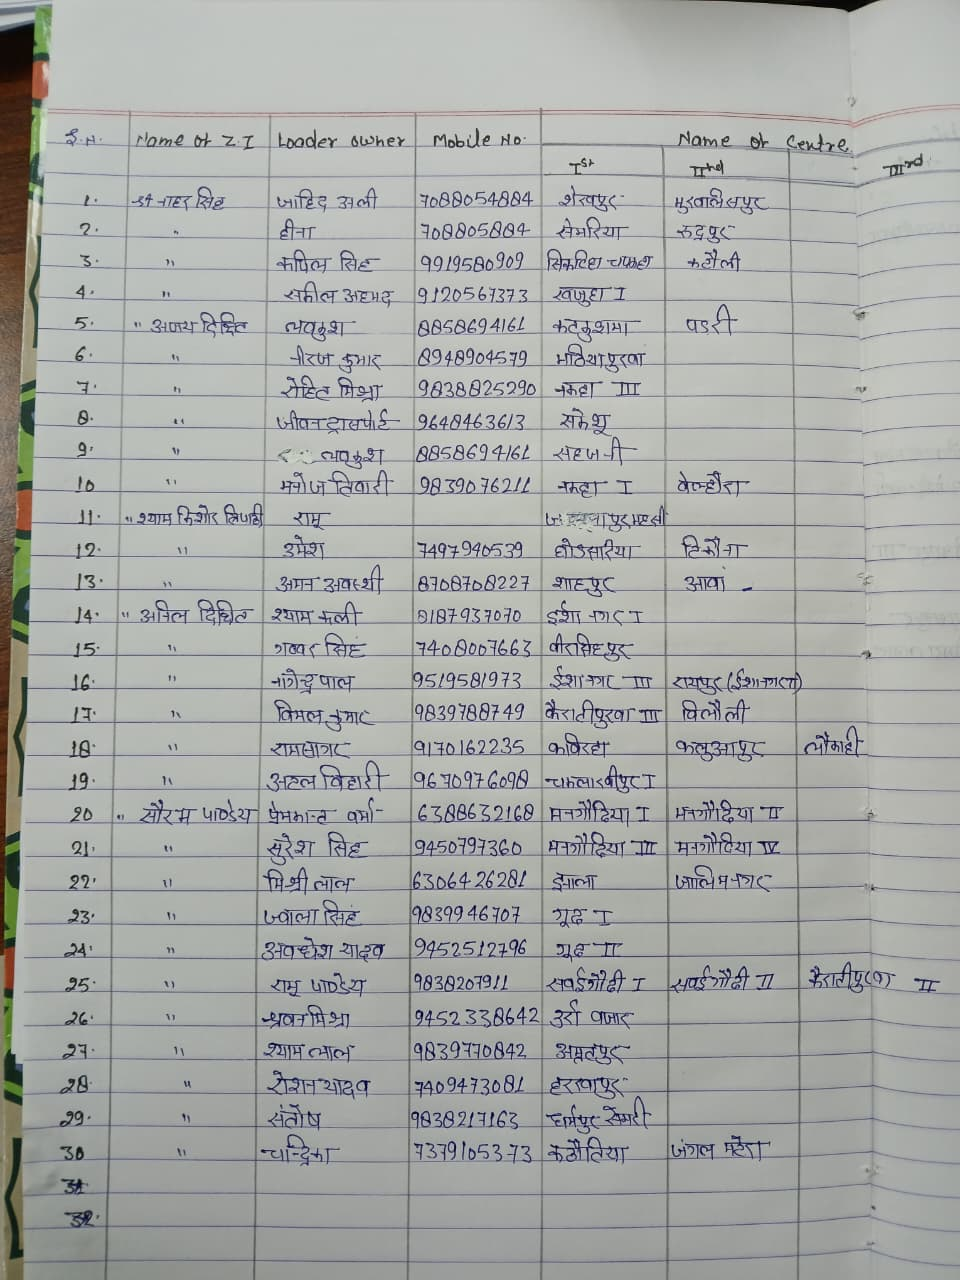 S.N. Name of Z.I Loader owner Mobile No. Name of Centre
Ist IInd IIIrd
1. श्री नाहर सिंह जाहिद अली 7088054884 शेखपुर
2. " हीना 708805884 सेमरिया रुद्रपुर
3. " कपिल सिंह 9919580909 सिकटिहा कठौली
4. " सकील अहमद 9120567373 खजुहा I
5. " अजय दिक्षित लवकुश 8858694161 कटकुशमा पडरी
6. " नीरज कुमार 8948904579 मठियापुरवा
7. " रोहित मिश्रा 9838825290 नकहा III
8. " जीवन ट्रासपोर्ट 9648463613 सकेथू
9. " लवकुश 8858694161 सहजनी
10 " मनोज तिवारी 9839076211 नकहा I बेल्हौरा
11. " श्याम किशोर त्रिपाठी रामू
12. " उमेश 7497940539 घोडसारिया टिकौना
13. " अमन अवस्थी 8708708227 शाहपुर आवां -
14. " अनिल दिक्षित श्याम कली 8187937070 ईशा नगर I
15. " गब्बर सिंह 7408007663 वीरसिंहपुर
16. " नागेन्द्र पाल 9519581973 ईशानगर III रायपुर
17. " विमल कुमार 9839788749 कैरातीपुरवा III विलौली
18. " रामसागर 9170162235 कविरहा कलुआपुर लौकाही
19. " अटल विहारी 9670976098 चकलाखीपुर I
20 " सौरभ पाण्डेय प्रेमकान्त वर्मा 6388632168 मनगौढिया I मनगौढिया II
21. " सुरेश सिंह 9450797360 मनगौढिया III मनगौढिया IV
22. " मिश्री लाल 6306426281 झाला जालिमनगर
23. " ज्वाला सिंह 9839946707 गूढ I
24. " अवधेश यादव 9452512796 गूढ II
25. " रामू पाण्डेय 9838207911 सवईगौढी I सवईगौढी II कैरातीपुरवा II
26. " श्रवन मिश्रा 9452338642 उर्रा बाजार
27. " श्याम लाल 9839770842 अमृतपुर
28. " रोशन यादव 7409473081 हरखापुर
29. " संतोष 9838217163 धर्मपुर सेमरी
30 " चन्द्रिका 7379105373 कठौतिया जंगल मटेरा
31
32.